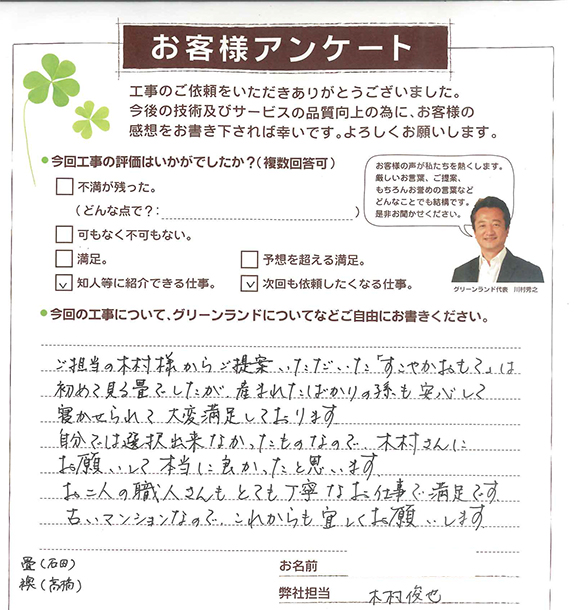 お客様アンケート
工事のご依頼をいただきありがとうございました。
今後の技術及びサービスの品質向上の為に、お客様の
感想をお書き下されば幸いです。よろしくお願いします。
●今回工事の評価はいかがでしたか？(複数回答可)
不満が残った。
(どんな点で？: )
可もなく不可もない。
満足。
予想を超える満足。
知人等に紹介できる仕事。
次回も依頼したくなる仕事。
お客様の声が私たちを熱くします。
厳しいお言葉、ご提案、
もちろんお誉めの言葉など
どんなことでも結構です。
是非お聞かせください。
グリーンランド代表 川村芳之
●今回の工事について、グリーンランドについてなどご自由にお書きください。
ご担当の木村様からご提案いただいた「すこやかおもて」は
初めて見る畳でしたが、産まれたばかりの孫も安心して
寝かせられて大変満足しております
自分では選択出来なかったものなので、木村さんに
お願いして本当に良かったと思います
お二人の職人さんもとても丁寧なお仕事で満足です
古いマンションなので、これからも宜しくお願いします
畳(石田)
襖(高橋)
お名前
弊社担当 木村俊也